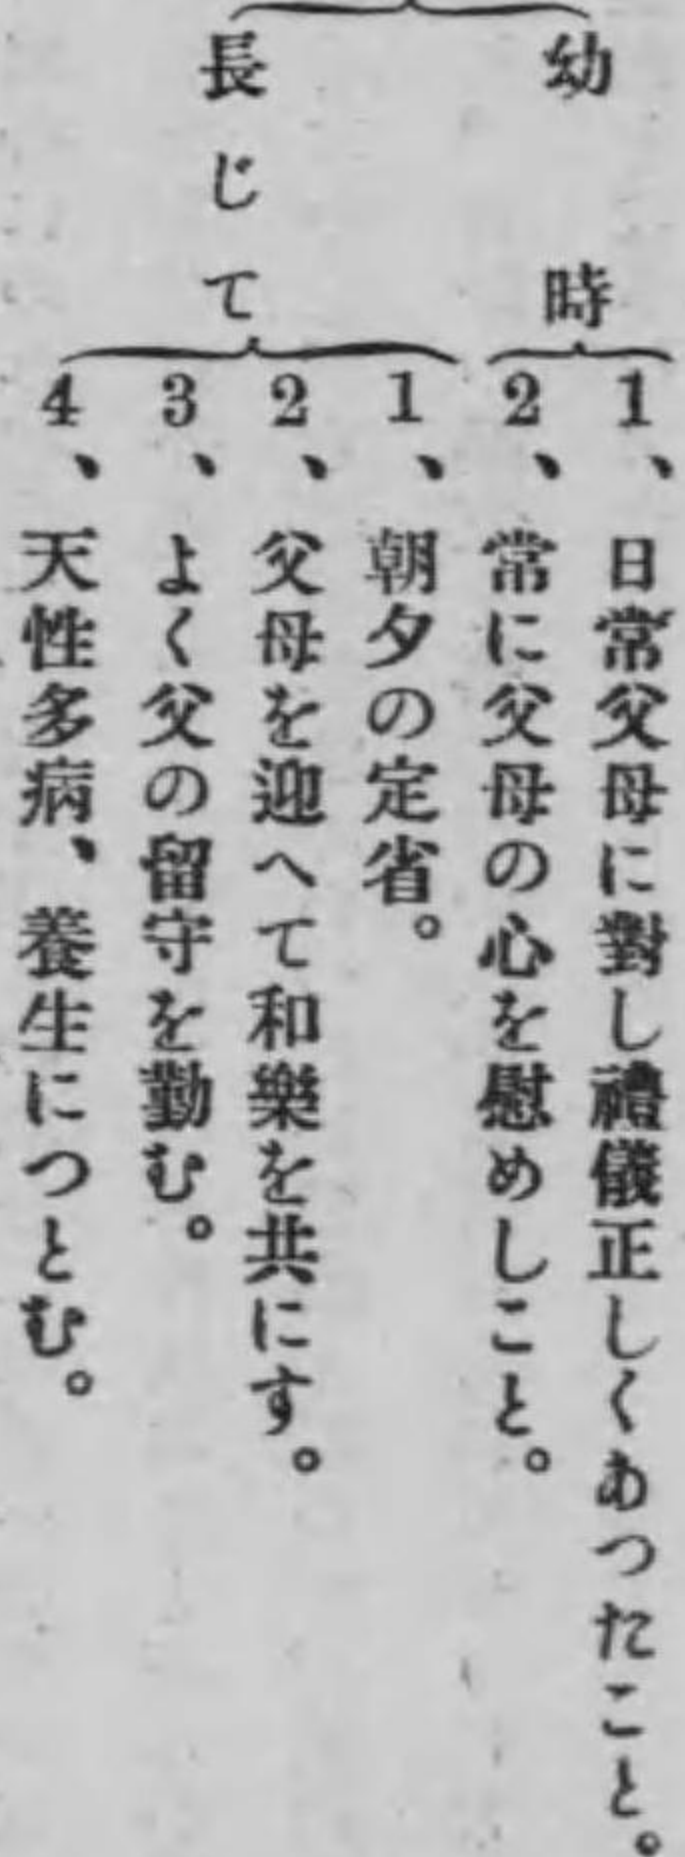 幼時
1、日常父母に對し禮儀正しくあつたこと。
2、常に父母の心を慰めしこと。
長じて
1、朝夕の定省。
2、父母を迎へて和樂を共にす。
3、よく父の留守を勤む。
4、天性多病、養生につとむ。